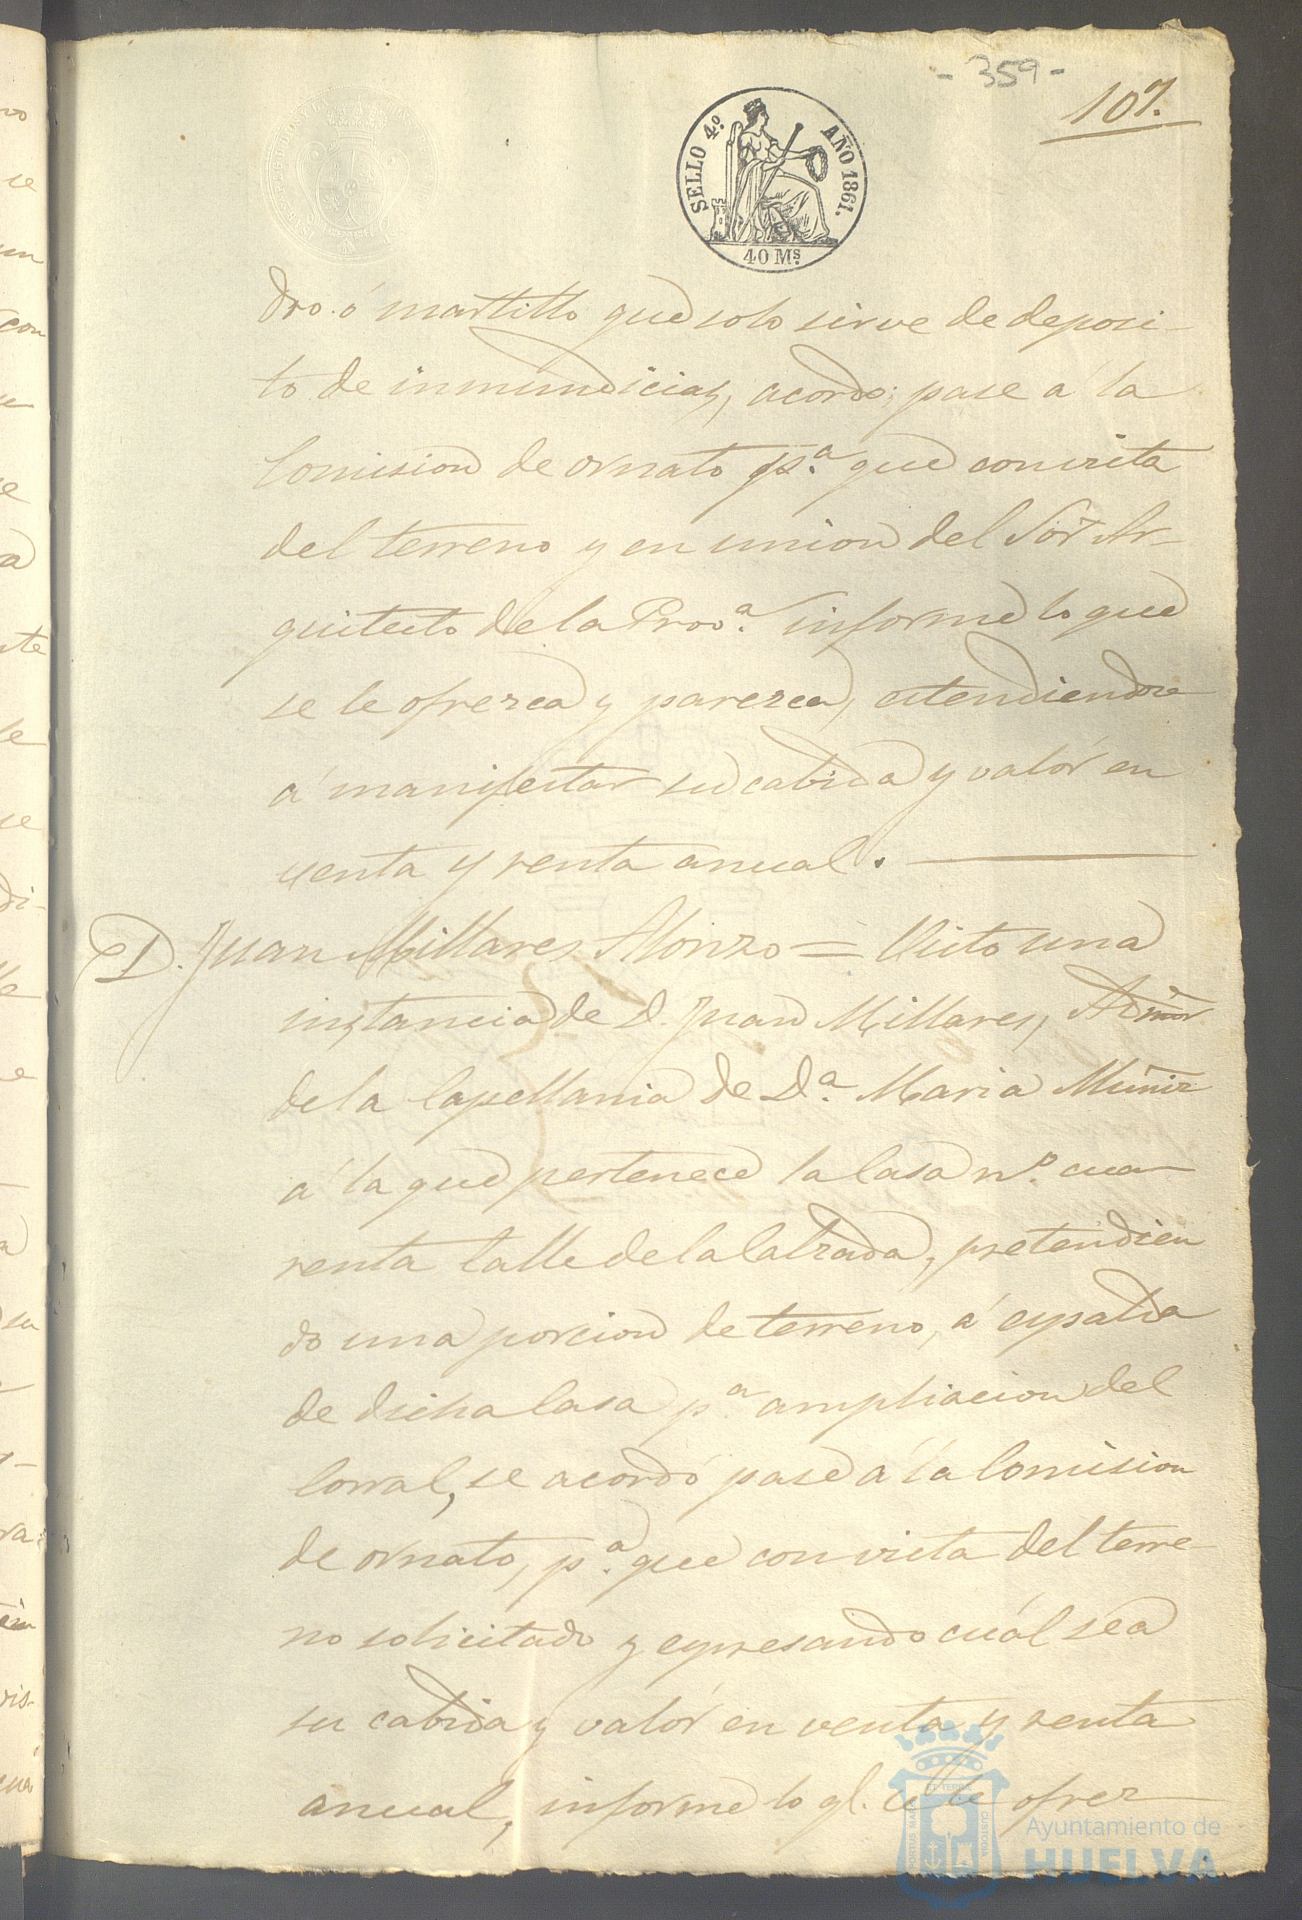 - 359 -
107.
SELLO 4.º AÑO 1861.
40 Mˢ
dro ó martillo que solo sirve de deposi-
to de inmundicias, acordo; pase á la
Comision de ornato pª. que con vista
del terreno y en union del Sor Ar-
quitecto de la Provª. informe lo que
se le ofrezca y parezca, estendiendose
á manifestar su cabida y valór en
venta y renta anual.
D. Juan Millares Alonzo = Visto una
instancia de D. Juan Millares, Admor
de la Capellania de Dª. Maria Muñiz
á la que pertenece la Casa nº. cua-
renta Calle de la Calzada, pretendien
do una porcion de terreno, á espalda
de dicha Casa pª ampliacion del
Corral, se acordó pase á la Comision
de ornato, pª. que con vista del terre-
no solicitado y espresando cuál sea
su cabida y valór en venta y renta
anual, informe lo ql. se le ofrez
PORTUS MARIS ET TERRAE CUSTODIA
Ayuntamiento de
HUELVA